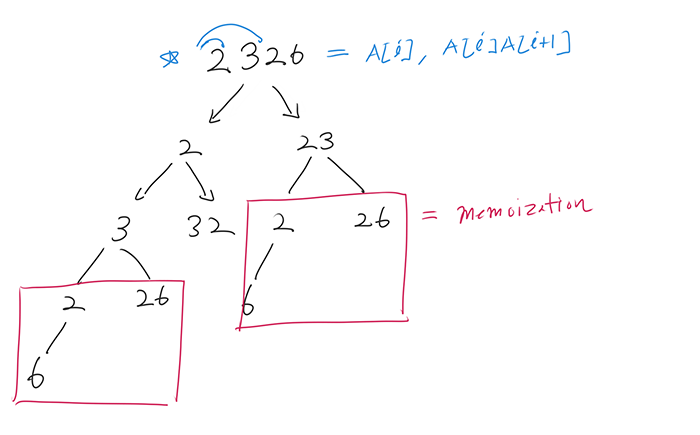 * 2326 = A[i], A[i]A[i+1]
2 23
3 32 2 26 = memoization
2 26 6
6